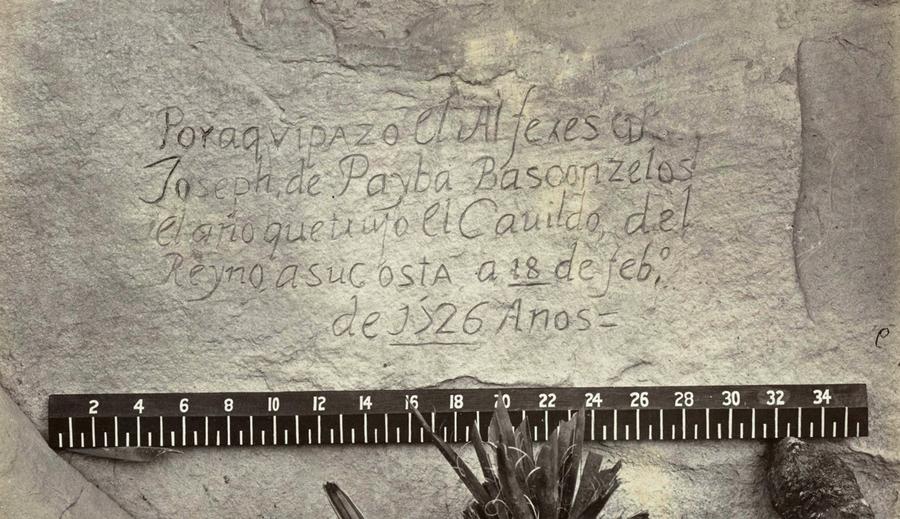 Por aqvi pazo el Alferes Dn
Joseph de Payba Basconzelos
el año que trujo el Cauildo del
Reyno a su costa a 18 de feb°
de 1526 Años=
2 4 6 8 10 12 14 16 18 20 22 24 26 28 30 32 34